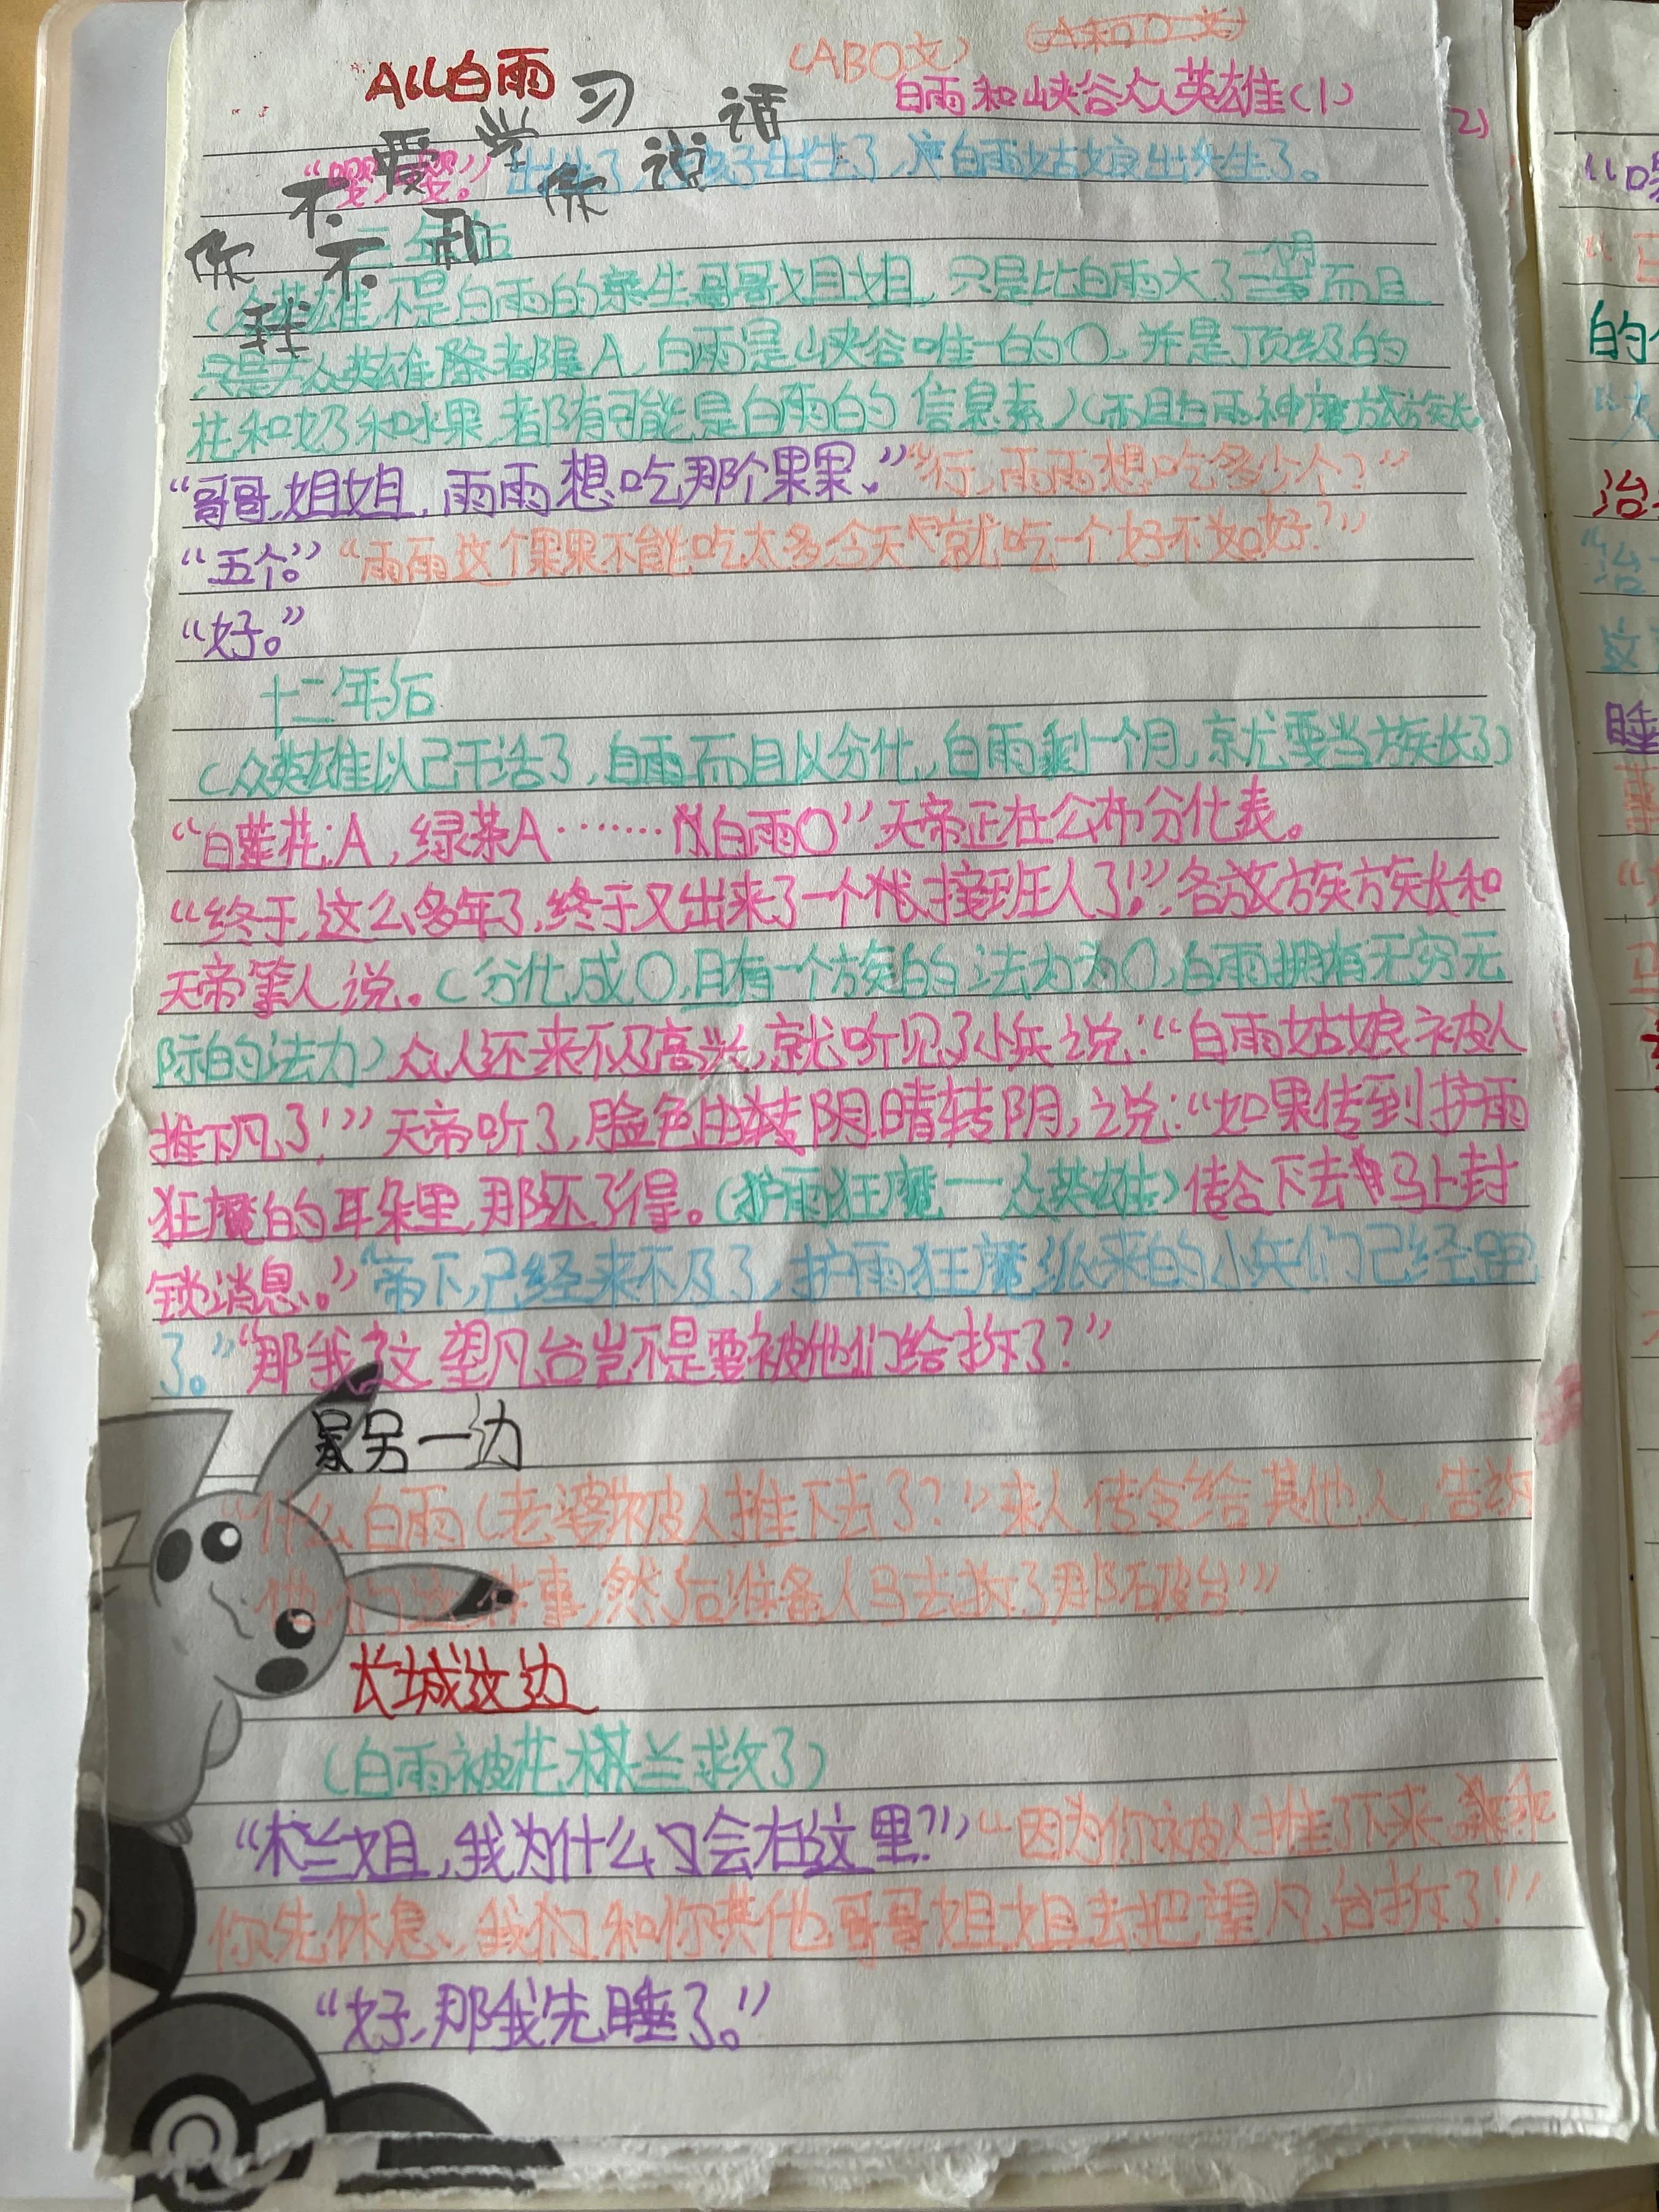 (ABO文)
All白雨
白雨和峡谷众英雄(1)
你不爱学习
我不和你说话
出生了,白雨姑娘出生了。
三年后
(众英雄不是白雨的亲生哥哥姐姐,只是比白雨大了一个月而且
只是众英雄除都是A,白雨是峡谷唯一的O,并是顶级的
花和奶和水果都有可能是白雨的信息素)(而且白雨神魔族族长
“哥哥,姐姐,雨雨想吃那个果果。”“行,雨雨想吃多少个?”
“五个。”“雨雨这个果果不能吃太多今天就吃一个好不好?”
“好。”
十二年后
(众英雄以己干活了,白雨而且以分化,白雨剩一个月,就要当族长了)
“白莲花:A,绿茶A·······白雨O”天帝正在公布分化表。
“终于,这么多年了,终于又出来了一个接班人了!”各族族长和
天帝等人说。(分化成O,且有一个族的法力为O,白雨拥有无穷无
际的法力)众人还来不及高兴,就听见了小兵说:“白雨姑娘被人
推下凡了!”天帝听了,脸色由晴转阴,说:“如果传到护雨
狂魔的耳朵里,那还了得。(护雨狂魔——众英雄)传令下去马上封
锁消息。”“帝下,已经来不及了,护雨狂魔派来的小兵们已经跑
了。”“那我这望凡台岂不是要被他们给拆了?”
另一边
“什么白雨(老婆被人推下去了?”来人传令给其他人,告诉
他们这件事,然后准备人马去拆了那破台!”
长城这边
(白雨被花木兰救了)
“木兰姐,我为什么会在这里?”“因为你被人推了下来,乖
你先休息,我们和你其他哥哥姐姐去把望凡台拆了!”
“好,那我先睡了。”
2)
的
治
“治
这
睡